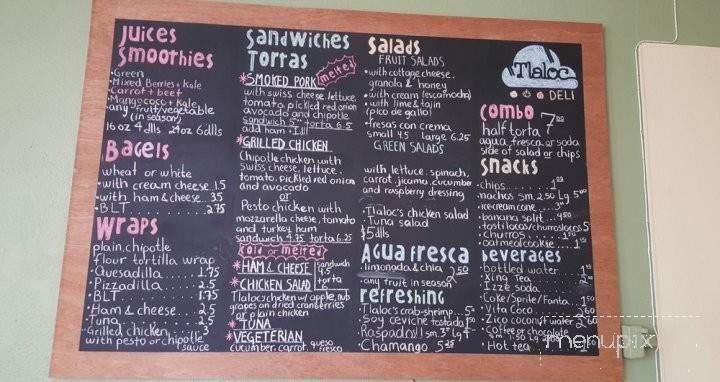 Juices
Smoothies
•Green
•Mixed Berries + Kale
•Carrot + beet
•Mangococo + Kale
•any fruit/vegetable
(in season)
16oz 4 dlls 24oz 6dlls
Bagels
wheat or white
•with cream cheese 1.5
•with ham & cheese 3.5
•BLT 2.75
Wraps
plain, chipotle
flour tortilla wrap
•Quesadilla 1.75
•Pizzadilla 2.5
•BLT 1.75
•Ham & cheese 2.5
•Tuna 2.5
•Grilled chicken 3
with pesto or chipotle
sauce
Sandwiches
Tortas
*SMOKED PORK melted
with swiss cheese, lettuce,
tomato, pickled red onion
avocado and chipotle
sandwich 5 torta 6.5
add ham + 1 dll
*GRILLED CHICKEN
Chipotle chicken with
swiss cheese, lettuce,
tomato, pickled red onion
and avocado
or
Pesto chicken with
mozzarella cheese, tomato
and turkey ham
sandwich 4.75 torta 6.25
cold or melted
*HAM & CHEESE sandwich
4.5
*CHICKEN SALAD torta
Tlaloc chicken w/ apple, nub
grapes and dried cranberries
or plain chicken
*TUNA
*VEGETERIAN
cucumber, carrot, queso
fresco
Salads
FRUIT SALADS
•with cottage cheese,
granola & honey
•with cream (escamocha)
•with lime & tajin
(pico de gallo)
•fresas con crema
small 4.5 large 6.25
GREEN SALADS
with lettuce, spinach,
carrot, jicama, cucumber
and raspberry dressing
•Tlaloc's chicken salad
•Tuna salad
$5 dlls
Agua Fresca
•limonada & chia 2.50
•any fruit in season
Refreshing
•Tlaloc's crab-shrimp 5
•Soy ceviche tostada
•Raspado sm 3 Lg 4
•Chamango 5
Tlaloc
DELI
Combo 7.00
half torta
agua fresca or soda
side of salad or chips
Snacks
•chips 1
•nachos sm 2.50 Lg 5.00
•ice cream cone 3
•banana split 4.50
•tostilocos/churrolocos 5
•churros 1
•oatmeal cookie 1
Beverages
•bottled water 1
•Xing Tea
•Izze Soda
•Coke/Sprite/Fanta
•Vita Coco
•Zico coconut water 2.60
•Coffee or chocolate
•Hot tea
menupix